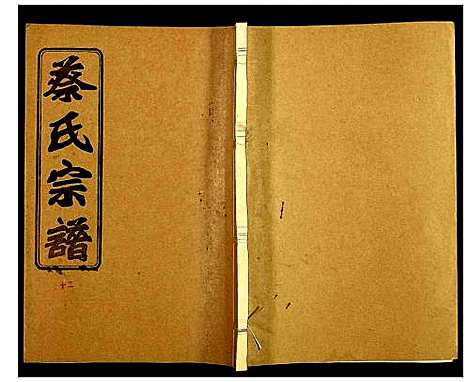 蔡氏宗譜
十二